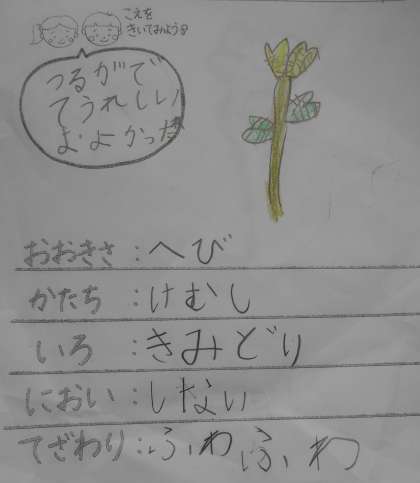 こえを
きいてみよう♪
つるがで
てうれしい
よ よかった
おおきさ:へび
かたち:けむし
いろ:きみどり
におい:しない
てざわり:ふわふわ